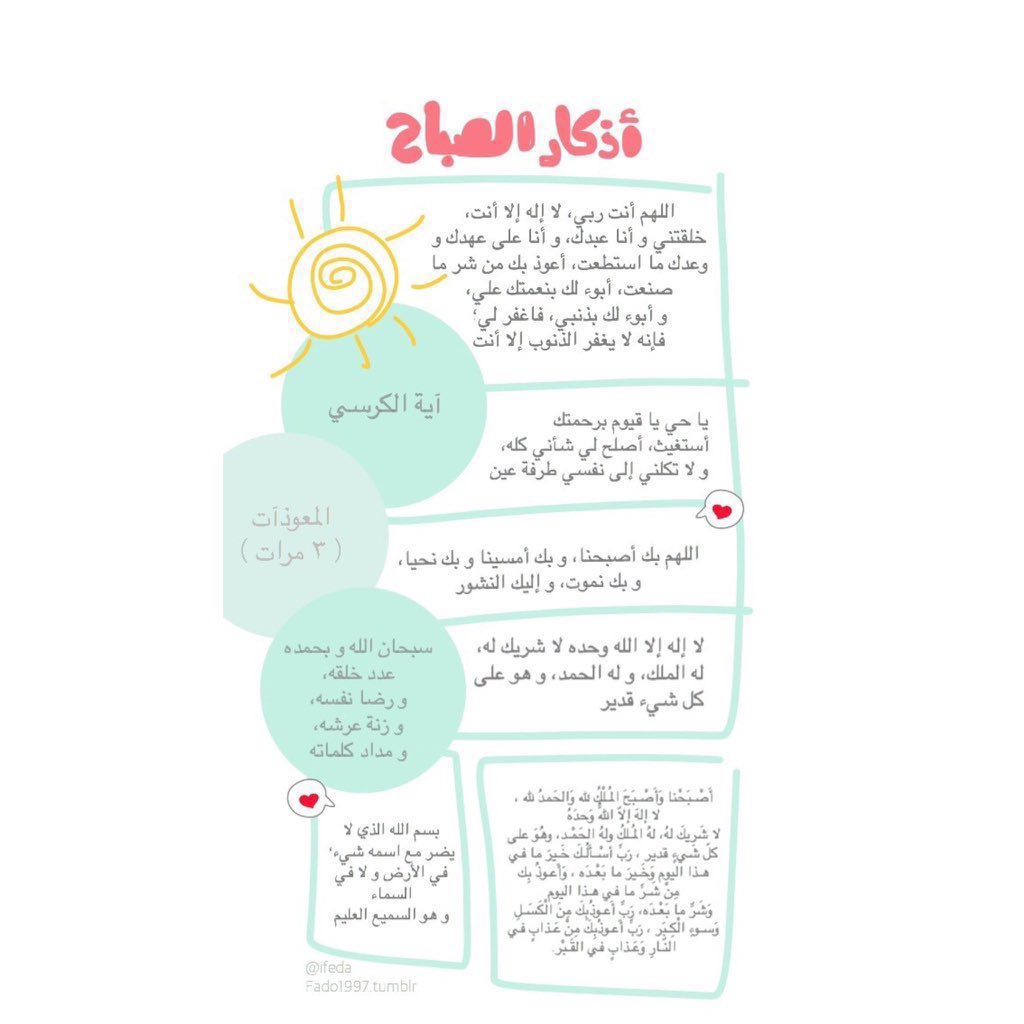 أذكار الصباح
اللهم أنت ربي، لا إله إلا أنت،
خلقتني و أنا عبدك، و أنا على عهدك و
وعدك ما استطعت، أعوذ بك من شر ما
صنعت، أبوء لك بنعمتك علي،
و أبوء لك بذنبي، فاغفر لي،
فإنه لا يغفر الذنوب إلا أنت
آية الكرسي
يا حي يا قيوم برحمتك
أستغيث، أصلح لي شأني كله،
و لا تكلني إلى نفسي طرفة عين
المعوذآت
( ٣ مرات )
اللهم بك أصبحنا، و بك أمسينا و بك نحيا،
و بك نموت، و إليك النشور
لا إله إلا الله وحده لا شريك له،
له الملك، و له الحمد، و هو على
كل شيء قدير
سبحان الله و بحمده
عدد خلقه،
و رضا نفسه،
و زنة عرشه،
و مداد كلماته
أَصْبَحْنا وَأَصْبَحَ المُلْكُ لله وَالحَمدُ لله ،
لا إلهَ إلاّ اللّهُ وَحدَهُ
لا شَريكَ لهُ، لهُ المُلكُ ولهُ الحَمْد، وهُوَ على
كلّ شَيءٍ قدير ، رَبِّ أسْألُكَ خَيرَ ما في
هذا اليوم وَخَيرَ ما بَعْدَه ، وَأَعوذُ بِكَ
مِنْ شَرِّ ما في هذا اليوم
وَشَرِّ ما بَعْدَه، رَبِّ أَعوذُبِكَ مِنَ الْكَسَلِ
وَسوءِ الْكِبَر ، رَبِّ أَعوذُبِكَ مِنْ عَذابٍ في
النّارِ وَعَذابٍ في القَبْر.
بسم الله الذي لا
يضر مع اسمه شيء،
في الأرض و لا في
السماء
و هو السميع العليم
@ifeda
Fado1997.tumblr